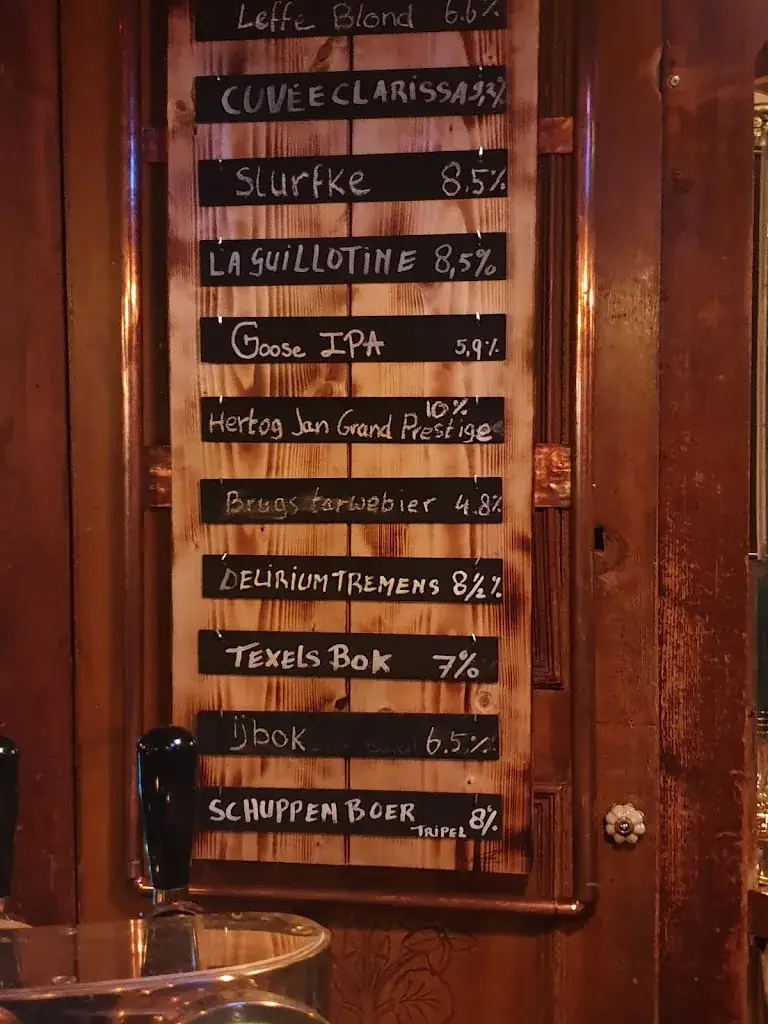 Leffe Blond 6.6%
CUVÉE CLARISSA 9,2%
Slurfke 8.5%
LA GUILLOTINE 8,5%
Goose IPA 5,9%
10%
Hertog Jan Grand Prestige
Brugs tarwebier 4.8%
DELIRIUM TREMENS 8½%
TEXELS BOK 7%
ijbok 6.5%
SCHUPPEN BOER 8%
TRIPEL